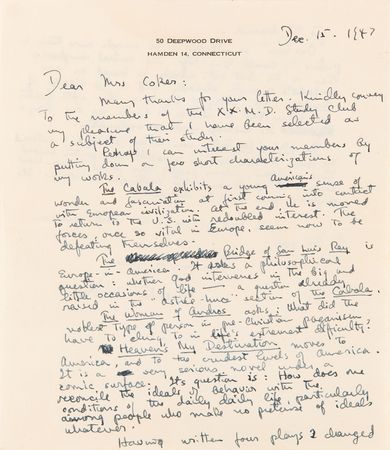 50 DEEPWOOD DRIVE
HAMDEN 14, CONNECTICUT
Dec. 15. 1947
Dear Mrs Coker:
Many thanks for your letter. Kindly convey
to the members of the XX. M.D. Study Club
my pleasure that I have been selected as
a subject of their study.
Perhaps I can interest your members by
putting down a few short characterizations of
my works.
The Cabala exhibits a young American's sense of
wonder and fascination at first coming into contact
with European civilization. At the end, he is moved
to return to the U.S. with redoubled interest. The
forces, once so vital in Europe, seem now to be
defeating themselves.
The Bridge of San Luis Rey is
Europe-in-America. It asks a philosophical
question: whether God intervenes in the big and
little occasions of life – a question already
raised in the "Astrée-Luce" section of The Cabala.
The Woman of Andros asks: What did the
noblest type of person in pre-Christian paganism
have to cling to in life's extremest difficulty?
Heaven's My Destination moves to
America, and to the crudest levels of America.
It is a very serious novel under a
comic surface. Its question is: How does one
reconcile the ideals of behavior with the
conditions of the daily daily life, particularly
among people who make no pretense of ideals
whatever.
Having written four plays I changed